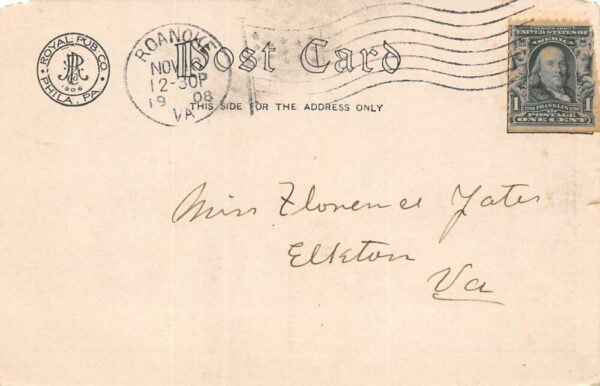 ROYAL PUB. CO.
PHILA. PA.
1906
ROANOKE
NOV
12-30P
1908
VA.
Post Card
THIS SIDE FOR THE ADDRESS ONLY
UNITED STATES OF
AMERICA
1 FRANKLIN 1
POSTAGE
ONE CENT
Miss Florence Yates
Elkton
Va